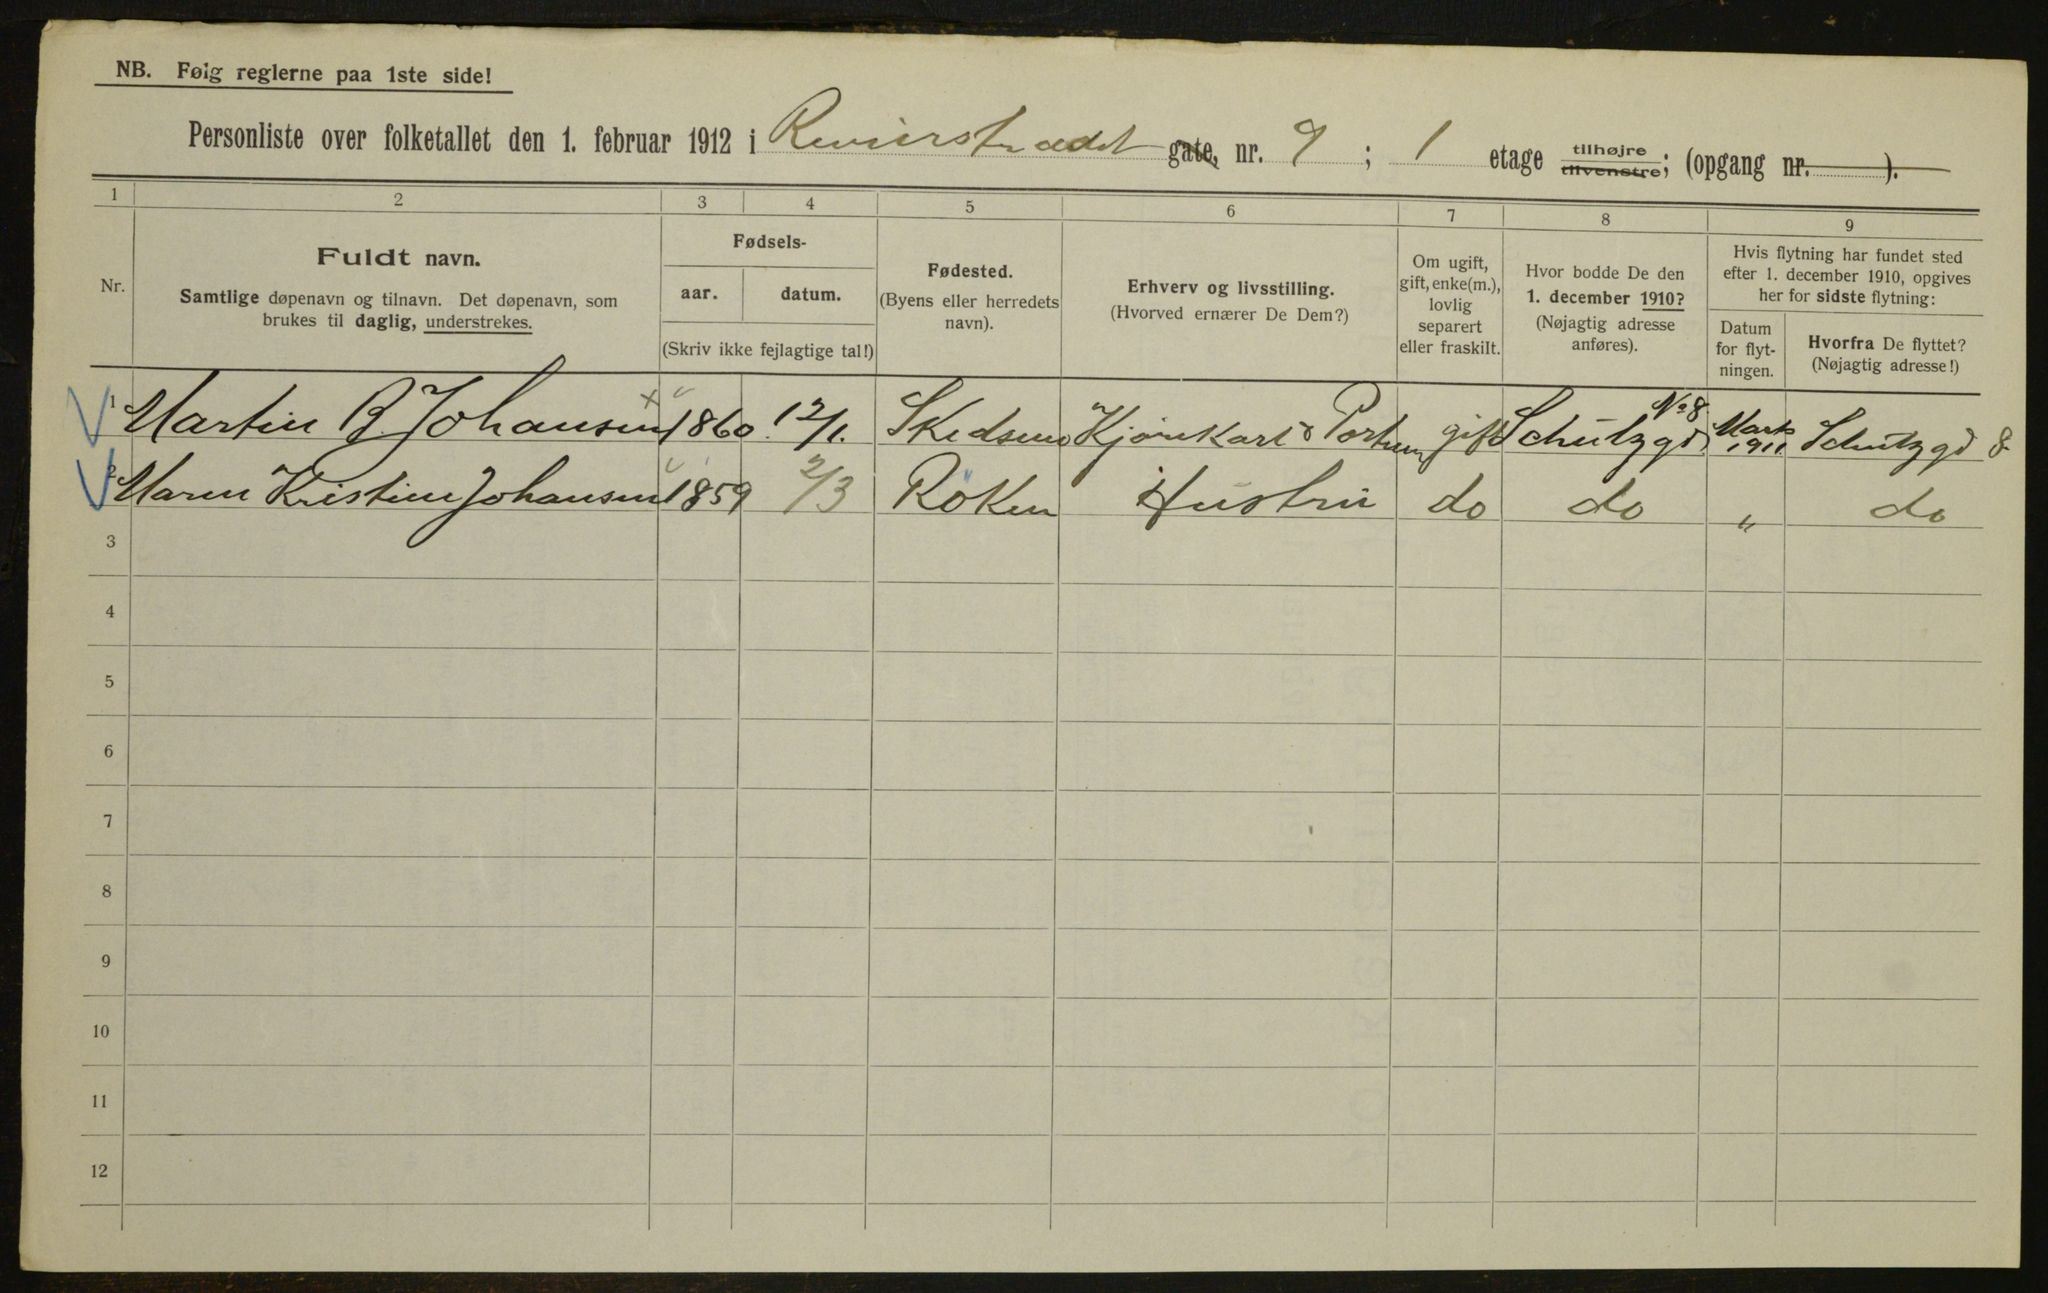 NB. Følg reglerne paa 1ste side!
Personliste over folketallet den 1. februar 1912 i Revierstrædet gate, nr. 9 ; 1 etage tilhøjre tilvenstre; (opgang nr. ).
1 2 3 4 5 6 7 8 9
Nr.
Fuldt navn.
Samtlige døpenavn og tilnavn. Det døpenavn, som
brukes til daglig, understrekes.
Fødsels-
aar. datum.
(Skriv ikke fejlagtige tal!)
Fødested.
(Byens eller herredets
navn).
Erhverv og livsstilling.
(Hvorved ernærer De Dem?)
Om ugift,
gift, enke(m.),
lovlig
separert
eller fraskilt.
Hvor bodde De den
1. december 1910?
(Nøjagtig adresse
anføres).
Hvis flytning har fundet sted
efter 1. december 1910, opgives
her for sidste flytning:
Datum
for flyt-
ningen.
Hvorfra De flyttet?
(Nøjagtig adresse!)
1 Martin B. Johansen 1860 12/1. Skedsmo Kjørekarl & Portner gift Schultzgd No 8 Marts 1911 Schultzgd 8
2 Maren Kristine Johansen 1859 2/3 Röken Hustru do do " do
3
4
5
6
7
8
9
10
11
12